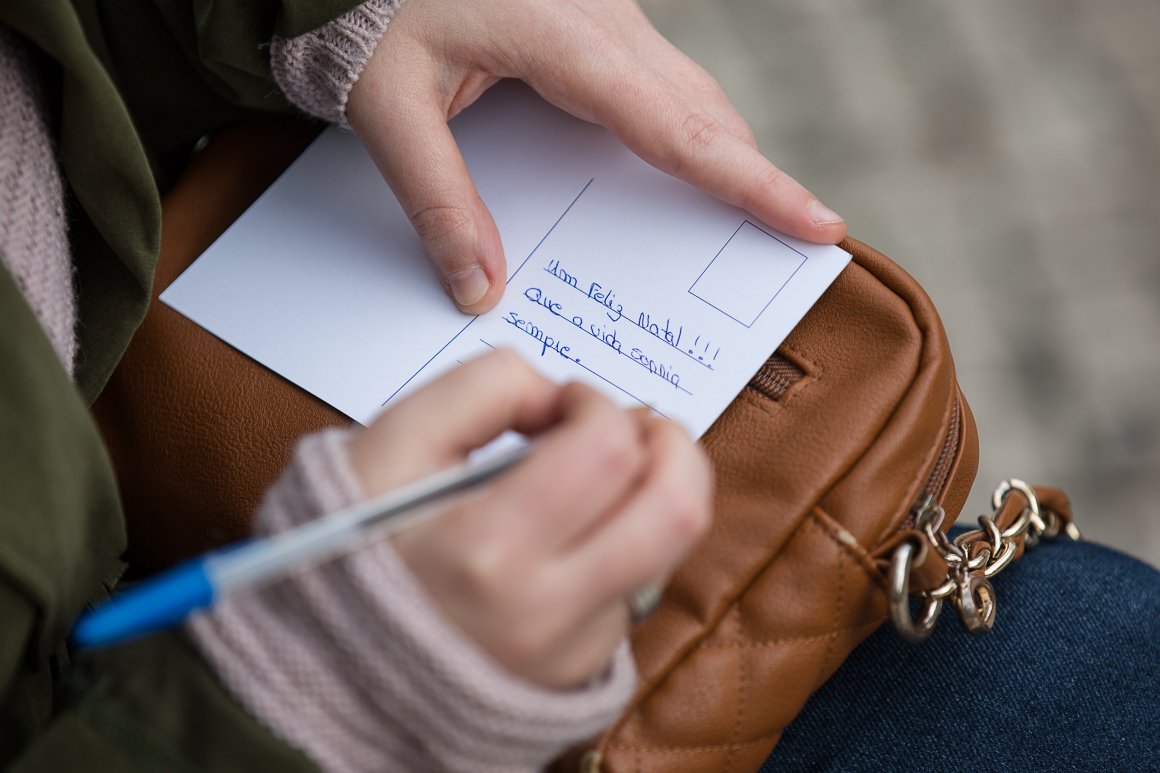 Um Feliz Natal!!!
Que a vida sorria
sempre.